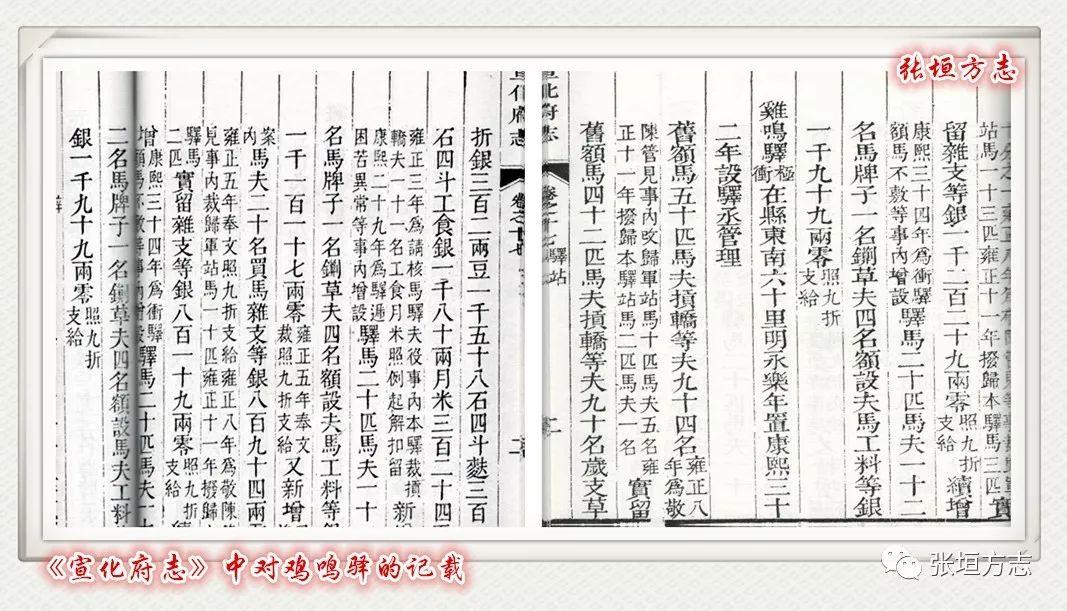 张垣方志
站馬一十三匹雍正十一年撥歸本驛馬三匹實
留雜支等銀一千二百二十九兩零照九折支給續增
康熙三十四年爲衝驛
額馬不敷等事內增設驛馬二十匹馬夫一十二
名馬牌子一名鍘草夫四名額設夫馬工料等銀
一千九十九兩零照九折支給
雞鳴驛極衝在縣東南六十里明永樂年置康熙三十
二年設驛丞管理
舊額馬五十匹馬夫損轎等夫九十四名雍正八年爲敬
陳管見事內改歸軍站馬十匹馬夫五名雍
正十一年撥歸本驛站馬二匹馬夫一名實留
舊額馬四十二匹馬夫損轎等夫九十名歲支草
宣化府志
卷之十七 驛站
折銀三百二兩豆一千五十八石四斗麩三百
石四斗工食銀一千八十兩月米三百二十四
雍正三年爲請核馬驛夫役事內本驛裁損
轎夫一十一名工食月米照例起解扣留
康熙二十九年爲驛遞
困苦異常等事內增設驛馬二十匹馬夫一十
名馬牌子一名鍘草夫四名額設夫馬工料等
一千一百一十七兩零雍正五年奉文裁照九折支給又新增
案內馬夫二十名買馬雜支等銀八百九十四兩
雍正五年奉文照九折支給雍正八年爲敬陳
見事內裁歸軍站馬一十匹雍正十一年撥歸
驛馬二匹實留雜支等銀八百一十九兩零照九折支給
增康熙三十四年爲衝驛
額馬不敷等事內增設驛馬二十匹馬夫一十
二名馬牌子一名鍘草夫四名額設馬夫工料
銀一千九十九兩零照九折支給
《宣化府志》中对鸡鸣驿的记载
张垣方志